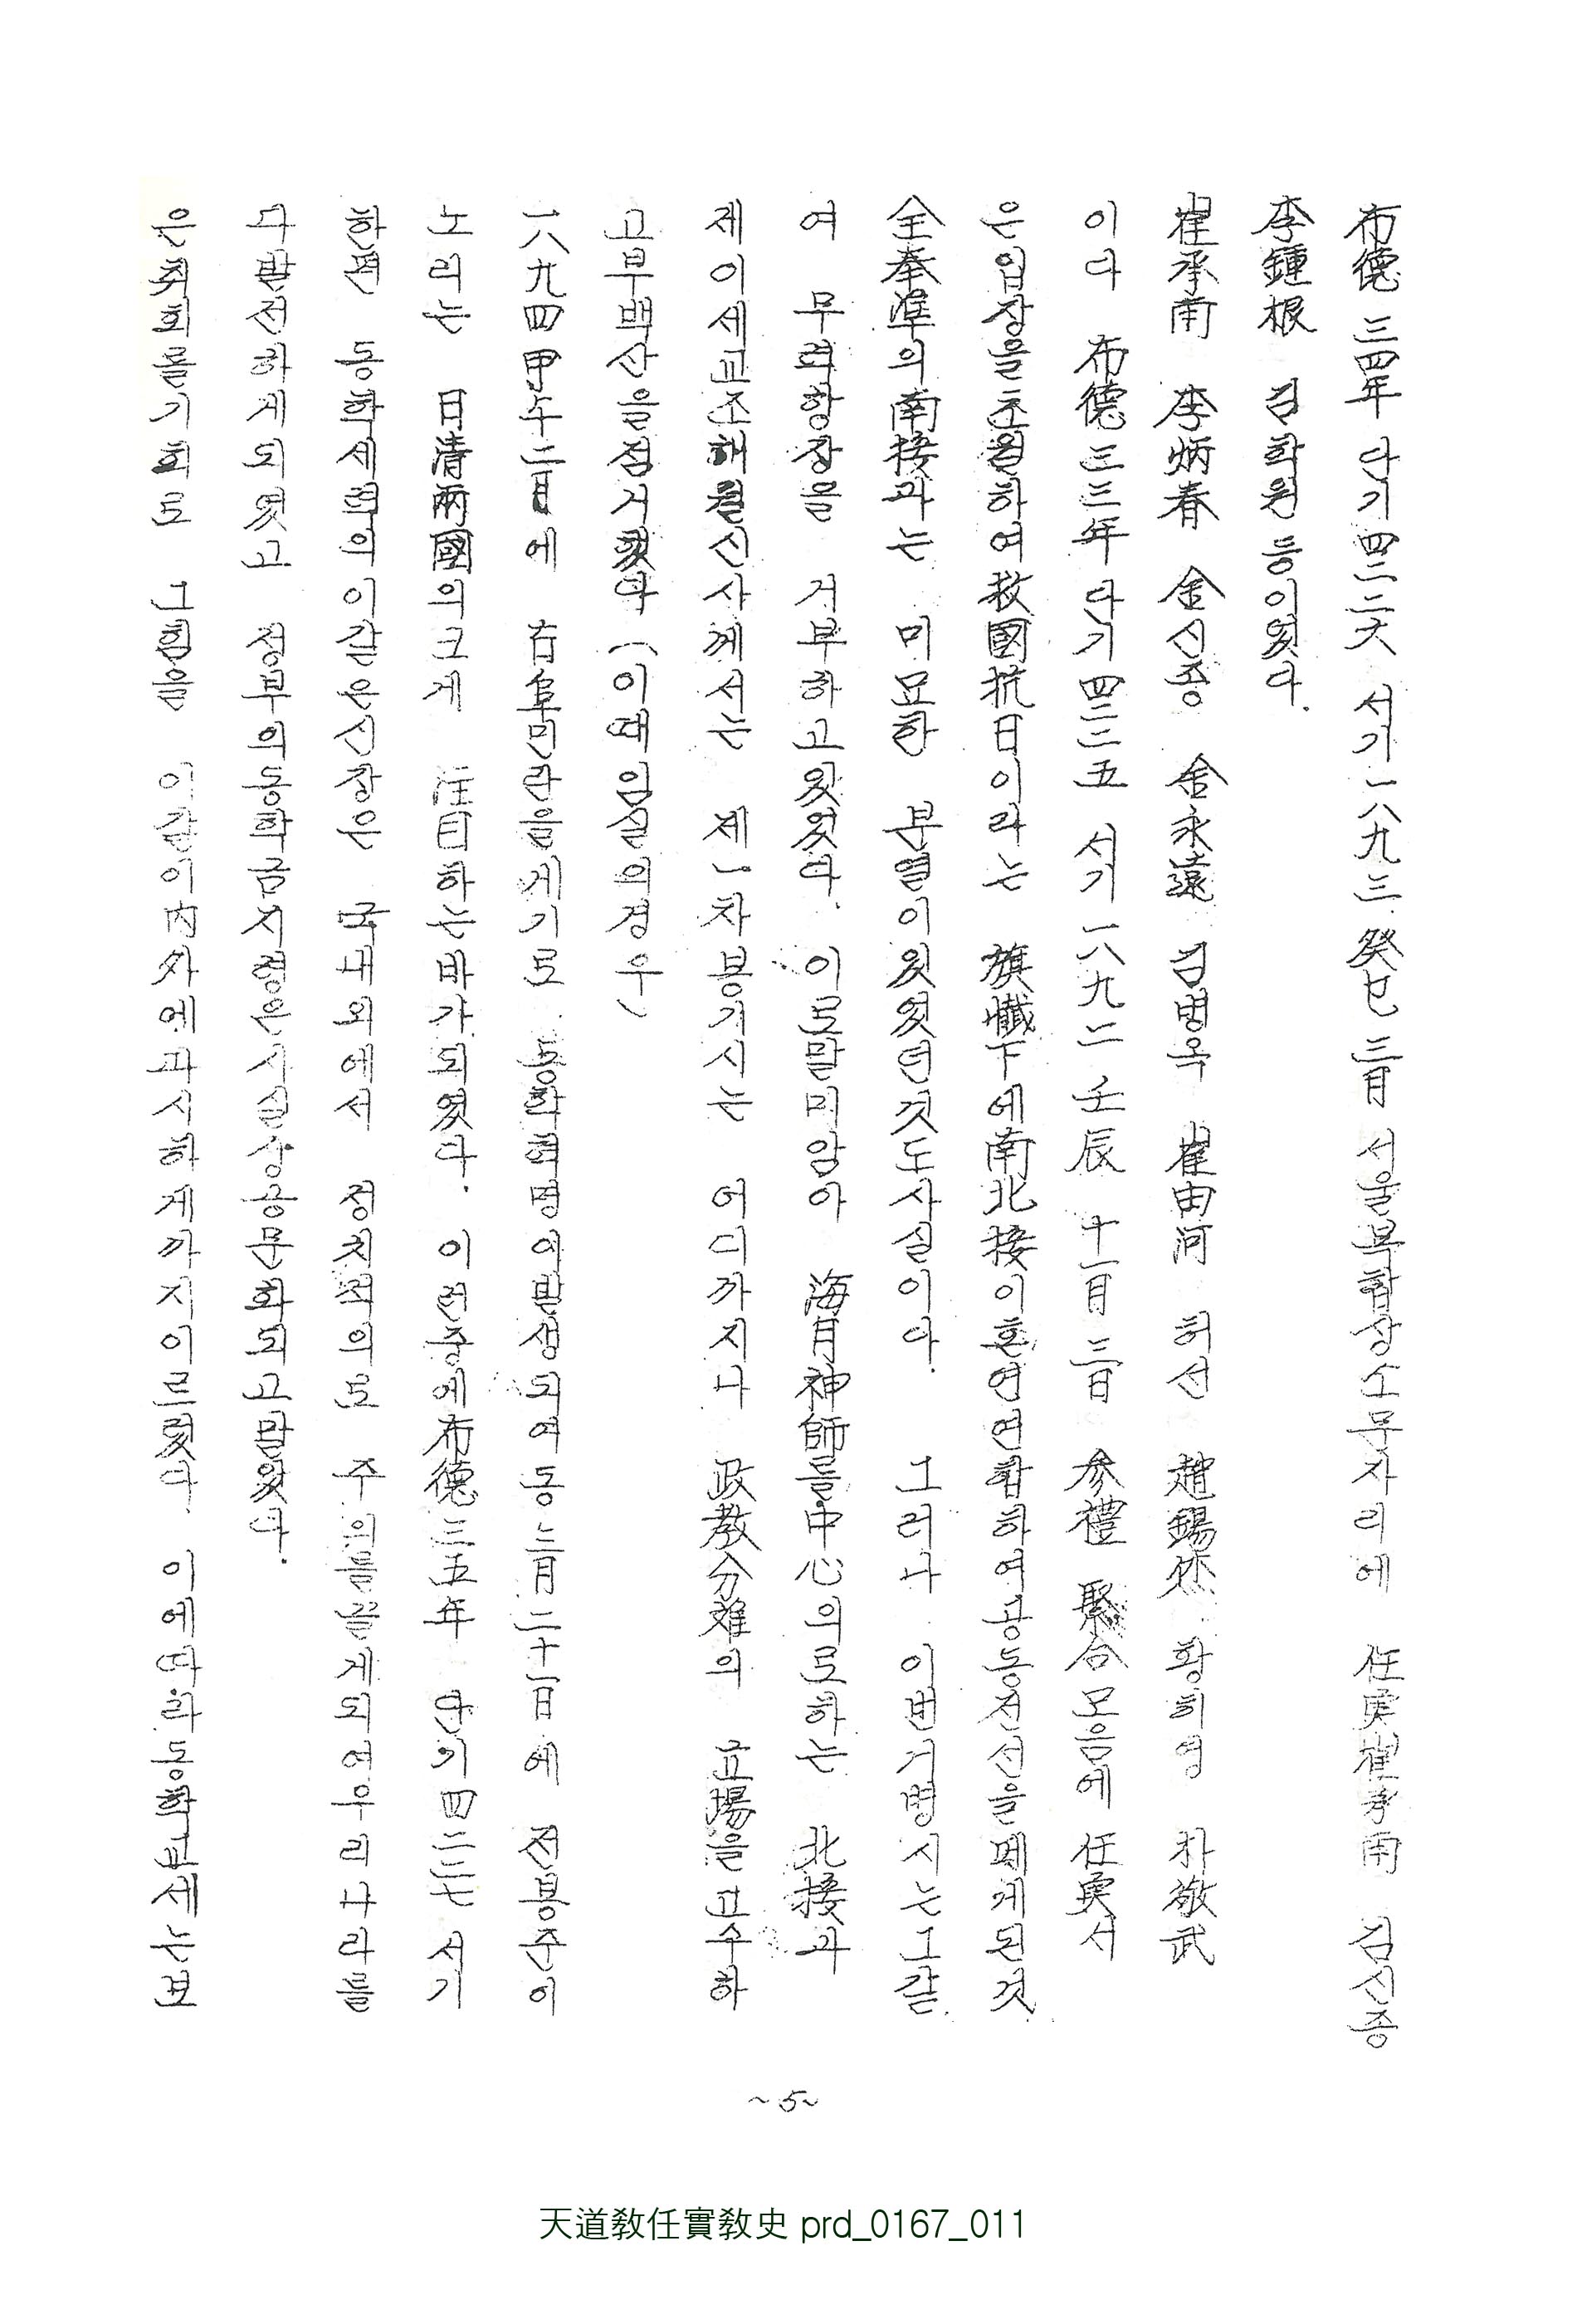 은취회를기회로 그힘을 이같이内外에과시하게까지이르렀다. 이에따라동학교세는보
다발전하게되였고 정부의동학금지령은사실상공문화되고말았다.
한편 동학세력의이같은신장은 국내외에서 정치적의로 주의를끌게되여우리나라를
노리는 日清兩國의크게 注目하는바가되였다. 이런중에布德三五年 단기四二二七 서기
一八九四甲午二月에 右阜민란을계기로 동학혁명이발생되여동三月二十一日에 전봉준이
고부백산을점거했다 (이때임실의경우)
제이세교조해월신사께서는 제一차봉기시는 어디까지나 政教分難의 立場을고수하
여 무력항장을 거부하고있었다. 이로말미암아 海月神師를中心의로하는 北接과
全奉準의南接과는 미묘한 분열이있었던것도사실이다. 그러나 이번거병시는그같
은입장을초월하여救國抗日이라는 旗幟下에南北接이혼연연합하여공동전선을펴게된것
이다 布德三三年 다기四二二五 서기一八九二壬辰十一月三日 參禮 聚合모음에 任実서
崔承南 李炳春 金신종 金永遠 김병옥 崔由河 허선 趙錫烋 황희영 朴敬武
李鍾根 김학원등이였다.
布德三四年 다기四二二六 서기一八九三.癸巳三月 서울복합상소무자리에 任実崔承南 김신종
~5~
天道敎任實敎史 prd_0167_011